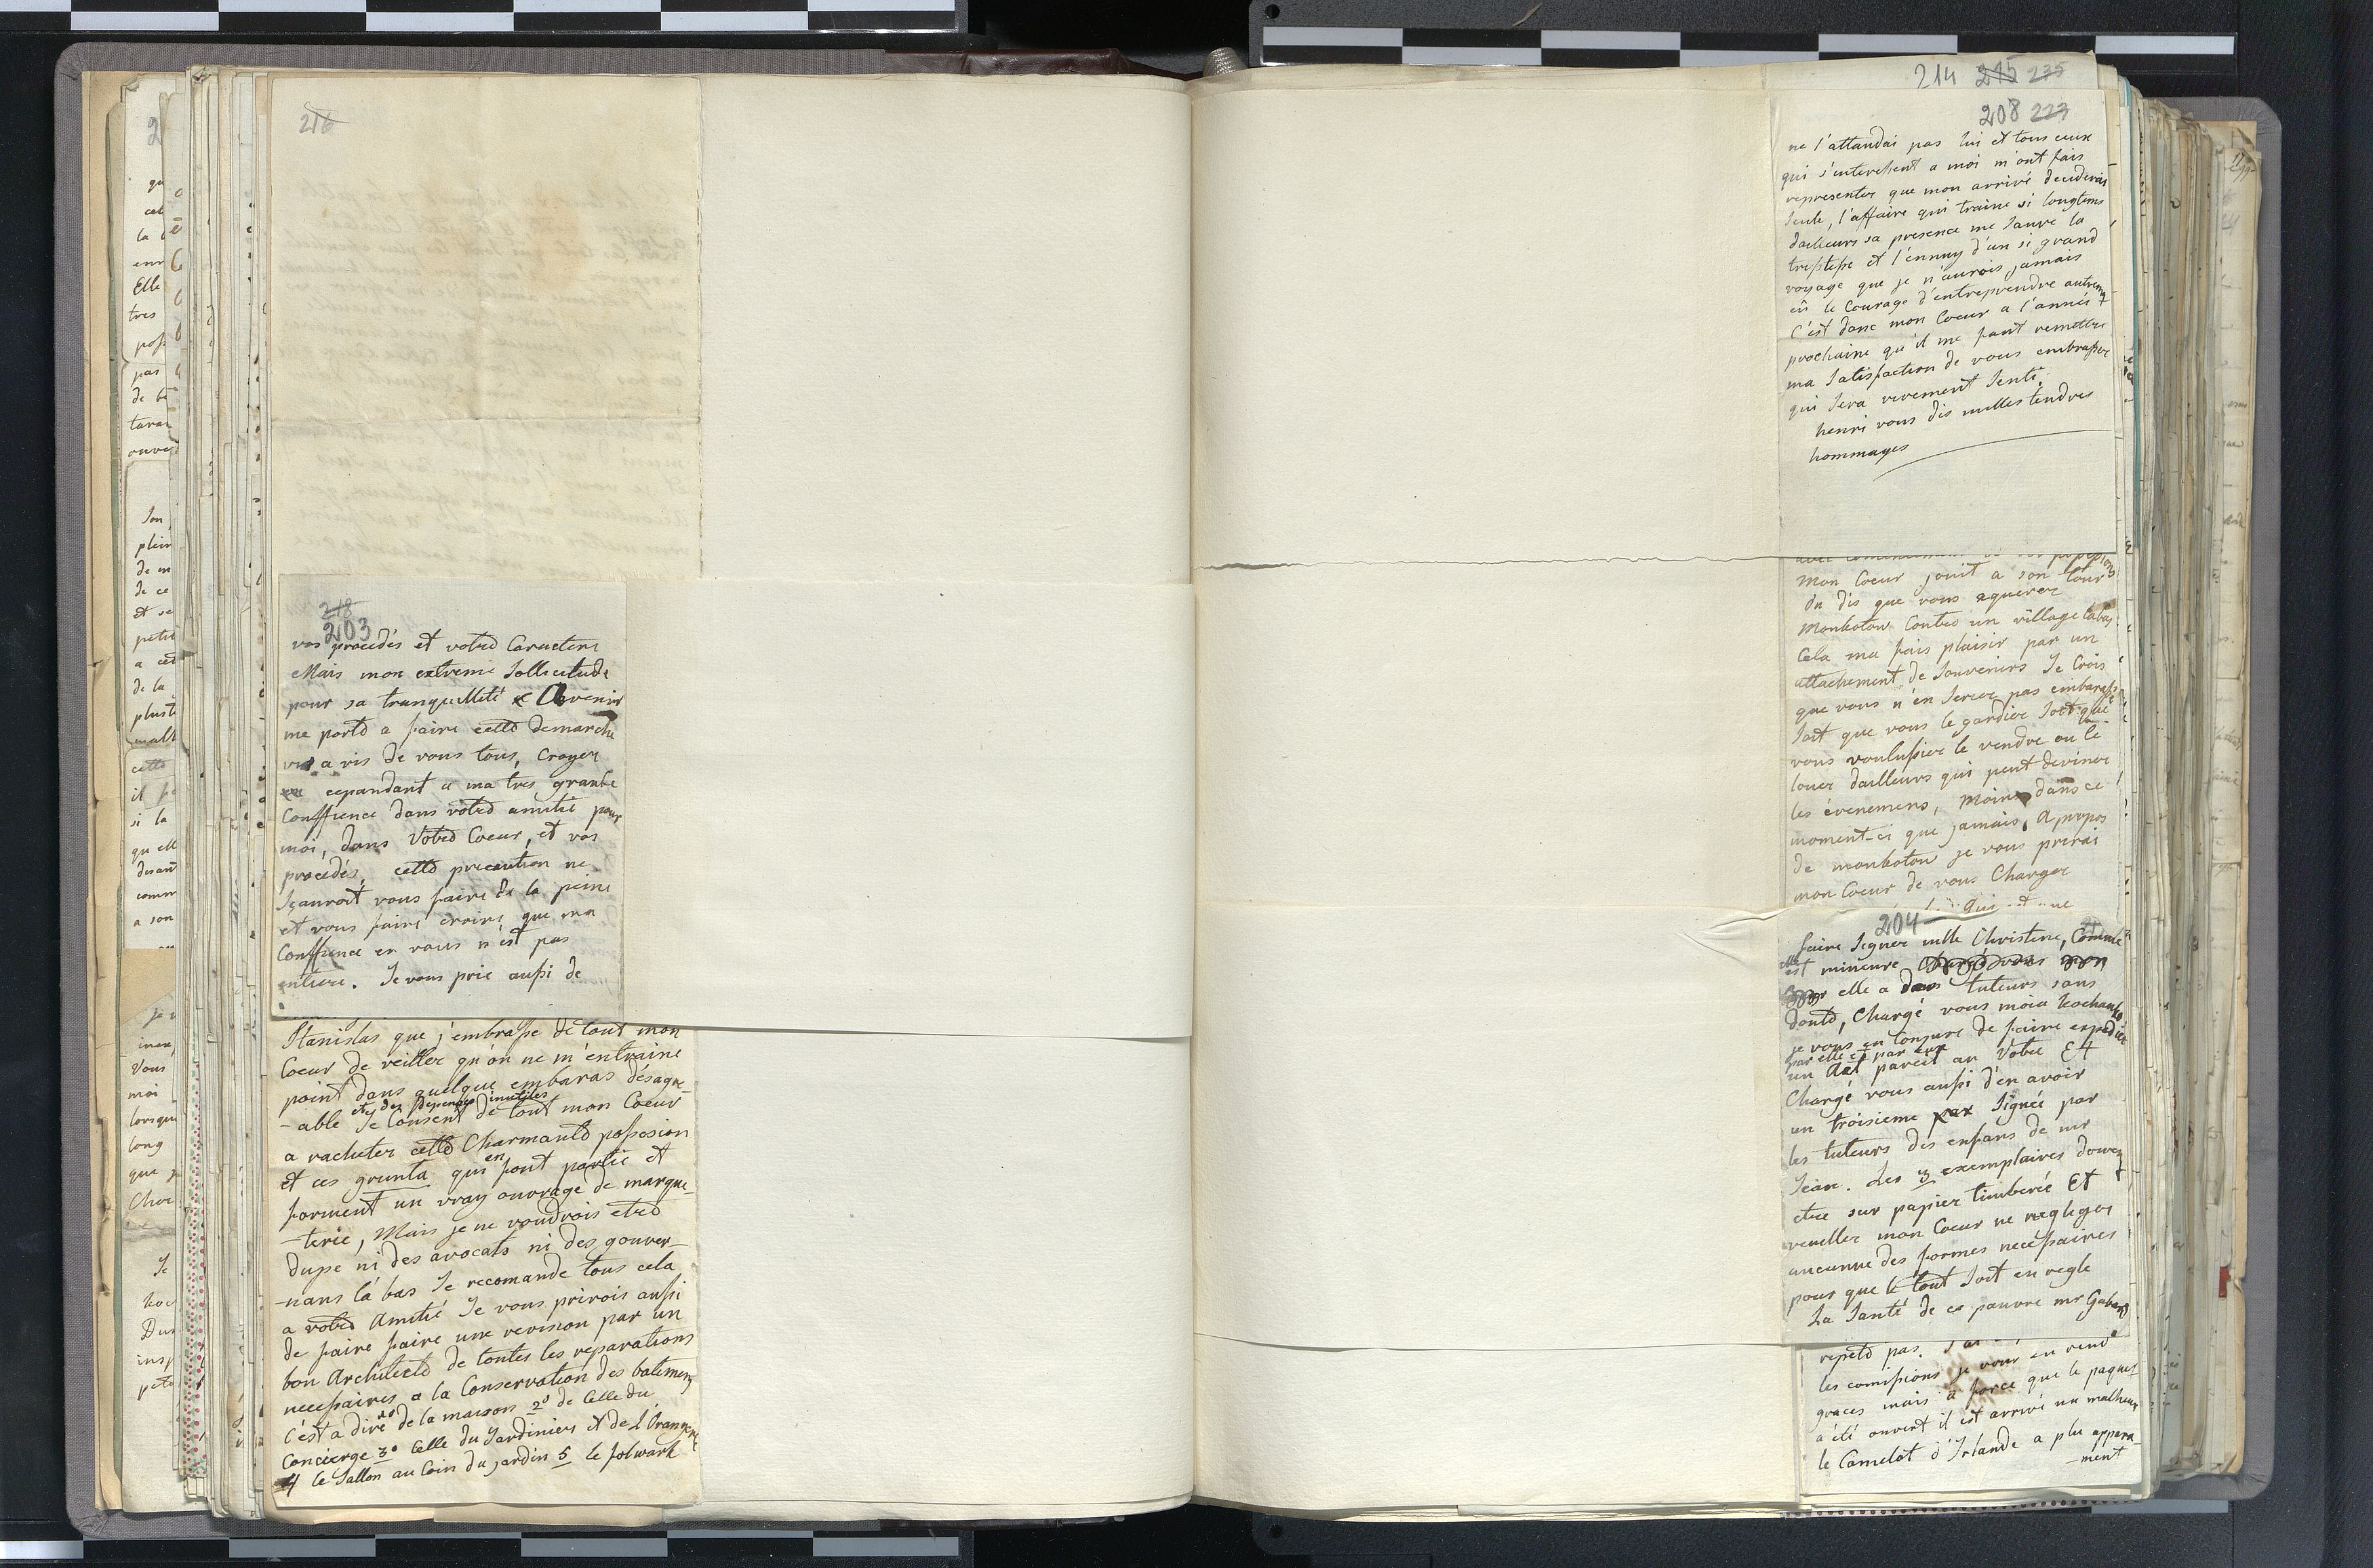 216
218
203
vos procedés et votre Caractere
Mais mon extreme Sollicitude
pour sa tranquillité Avenir
me porte a faire cette demarche
vis a vis de vous tous, Croyez
cependant a ma tres grande
Conffience dans votre amitié pour
moi, dans Votre Coeur, et vos
procedés, cette precaution ne
sçauroit vous faire de la peine
et vous faire croire que ma
Conffience en vous n'est pas
entiere. Je vous prie aussi de
Stanislas que j'embrasse de tout mon
Coeur de veiller qu'on ne m'entraine
point dans quelque embaras désagre
et des depenses inutiles
-able Je Consent de tout mon Coeur
a racheter cette Charmante possesion
et ces grunta qui en font partie et
forment un vray ouvrage de marque-
-terie, Mais je ne voudrois etre
dupe ni des avocats ni des gouver-
-nans là bas Je recomande tous cela
a votre Amitié Je vous prirois aussi
de faire faire une revision par un
bon Architecte de toutes les reparations
necessaires a la Conservation des batimens
C'est a dire 1º de la maison 2º de Celle du
Concierge 3º Celle du Jardiniers et de l'Orangerie
4 le Sallon au Coin du jardin 5 le folwark
214 215 235
208 223
ne l'attandai pas lui et tous ceux
qui s'interessent a moi m'ont fais
representer que mon arrivé decideroit
seule, l'affaire qui traine si longtems
dailleurs sa presence me sauve la
tristesse et l'ennuy d'un si grand
voyage que je n'aurois jamais
eû le Courage d'entreprendre autrement
C'est donc mon Coeur a l'année
prochaine qu'il me faut remettre
ma Satisfaction de vous embrasser
qui Sera vivement Senti.
henri vous dis milles tendres
hommages
Mon Coeur jouit a son tour
du dis que vous aquerez
Monkotow Contre un village labas
Cela ma fais plaisir par un
attachement de Souvenirs Je Crois
que vous n'en Serez pas embarassé
Soit que vous le gardiez Soit que
vous voulussiez le vendre ou le
louer dailleurs qui peut deviner
les évenemens, Moins dans ce
moment-ci que jamais, Apropos
de monkotow je vous prirai
mon Coeur de vous Charger
204
faire Signer mlle Christine, Comme
elle est mineure
elle a des tuteurs sans
doute, Chargé vous moia kochanko
je vous en Conjure de faire expedier
par elle et par eux
un Act pareil au Votre Et
Chargé vous aussi d'en avoir
un troisieme Signée par
les tuteurs des enfans de mr
Jean. Les 3 exemplaires doivent
etre sur papier timberée Et
veuillez mon Coeur ne negliger
aucunne des formes necessaires
pour que le tout Soit en regle
La Santé de ce pauvre mr
repete pas.
les comissions je vous en rend
graces mais a force que le paquet
a été ouvert il est arrivé un malheur
le Camelot d'Irlande a plu appara-
-ment